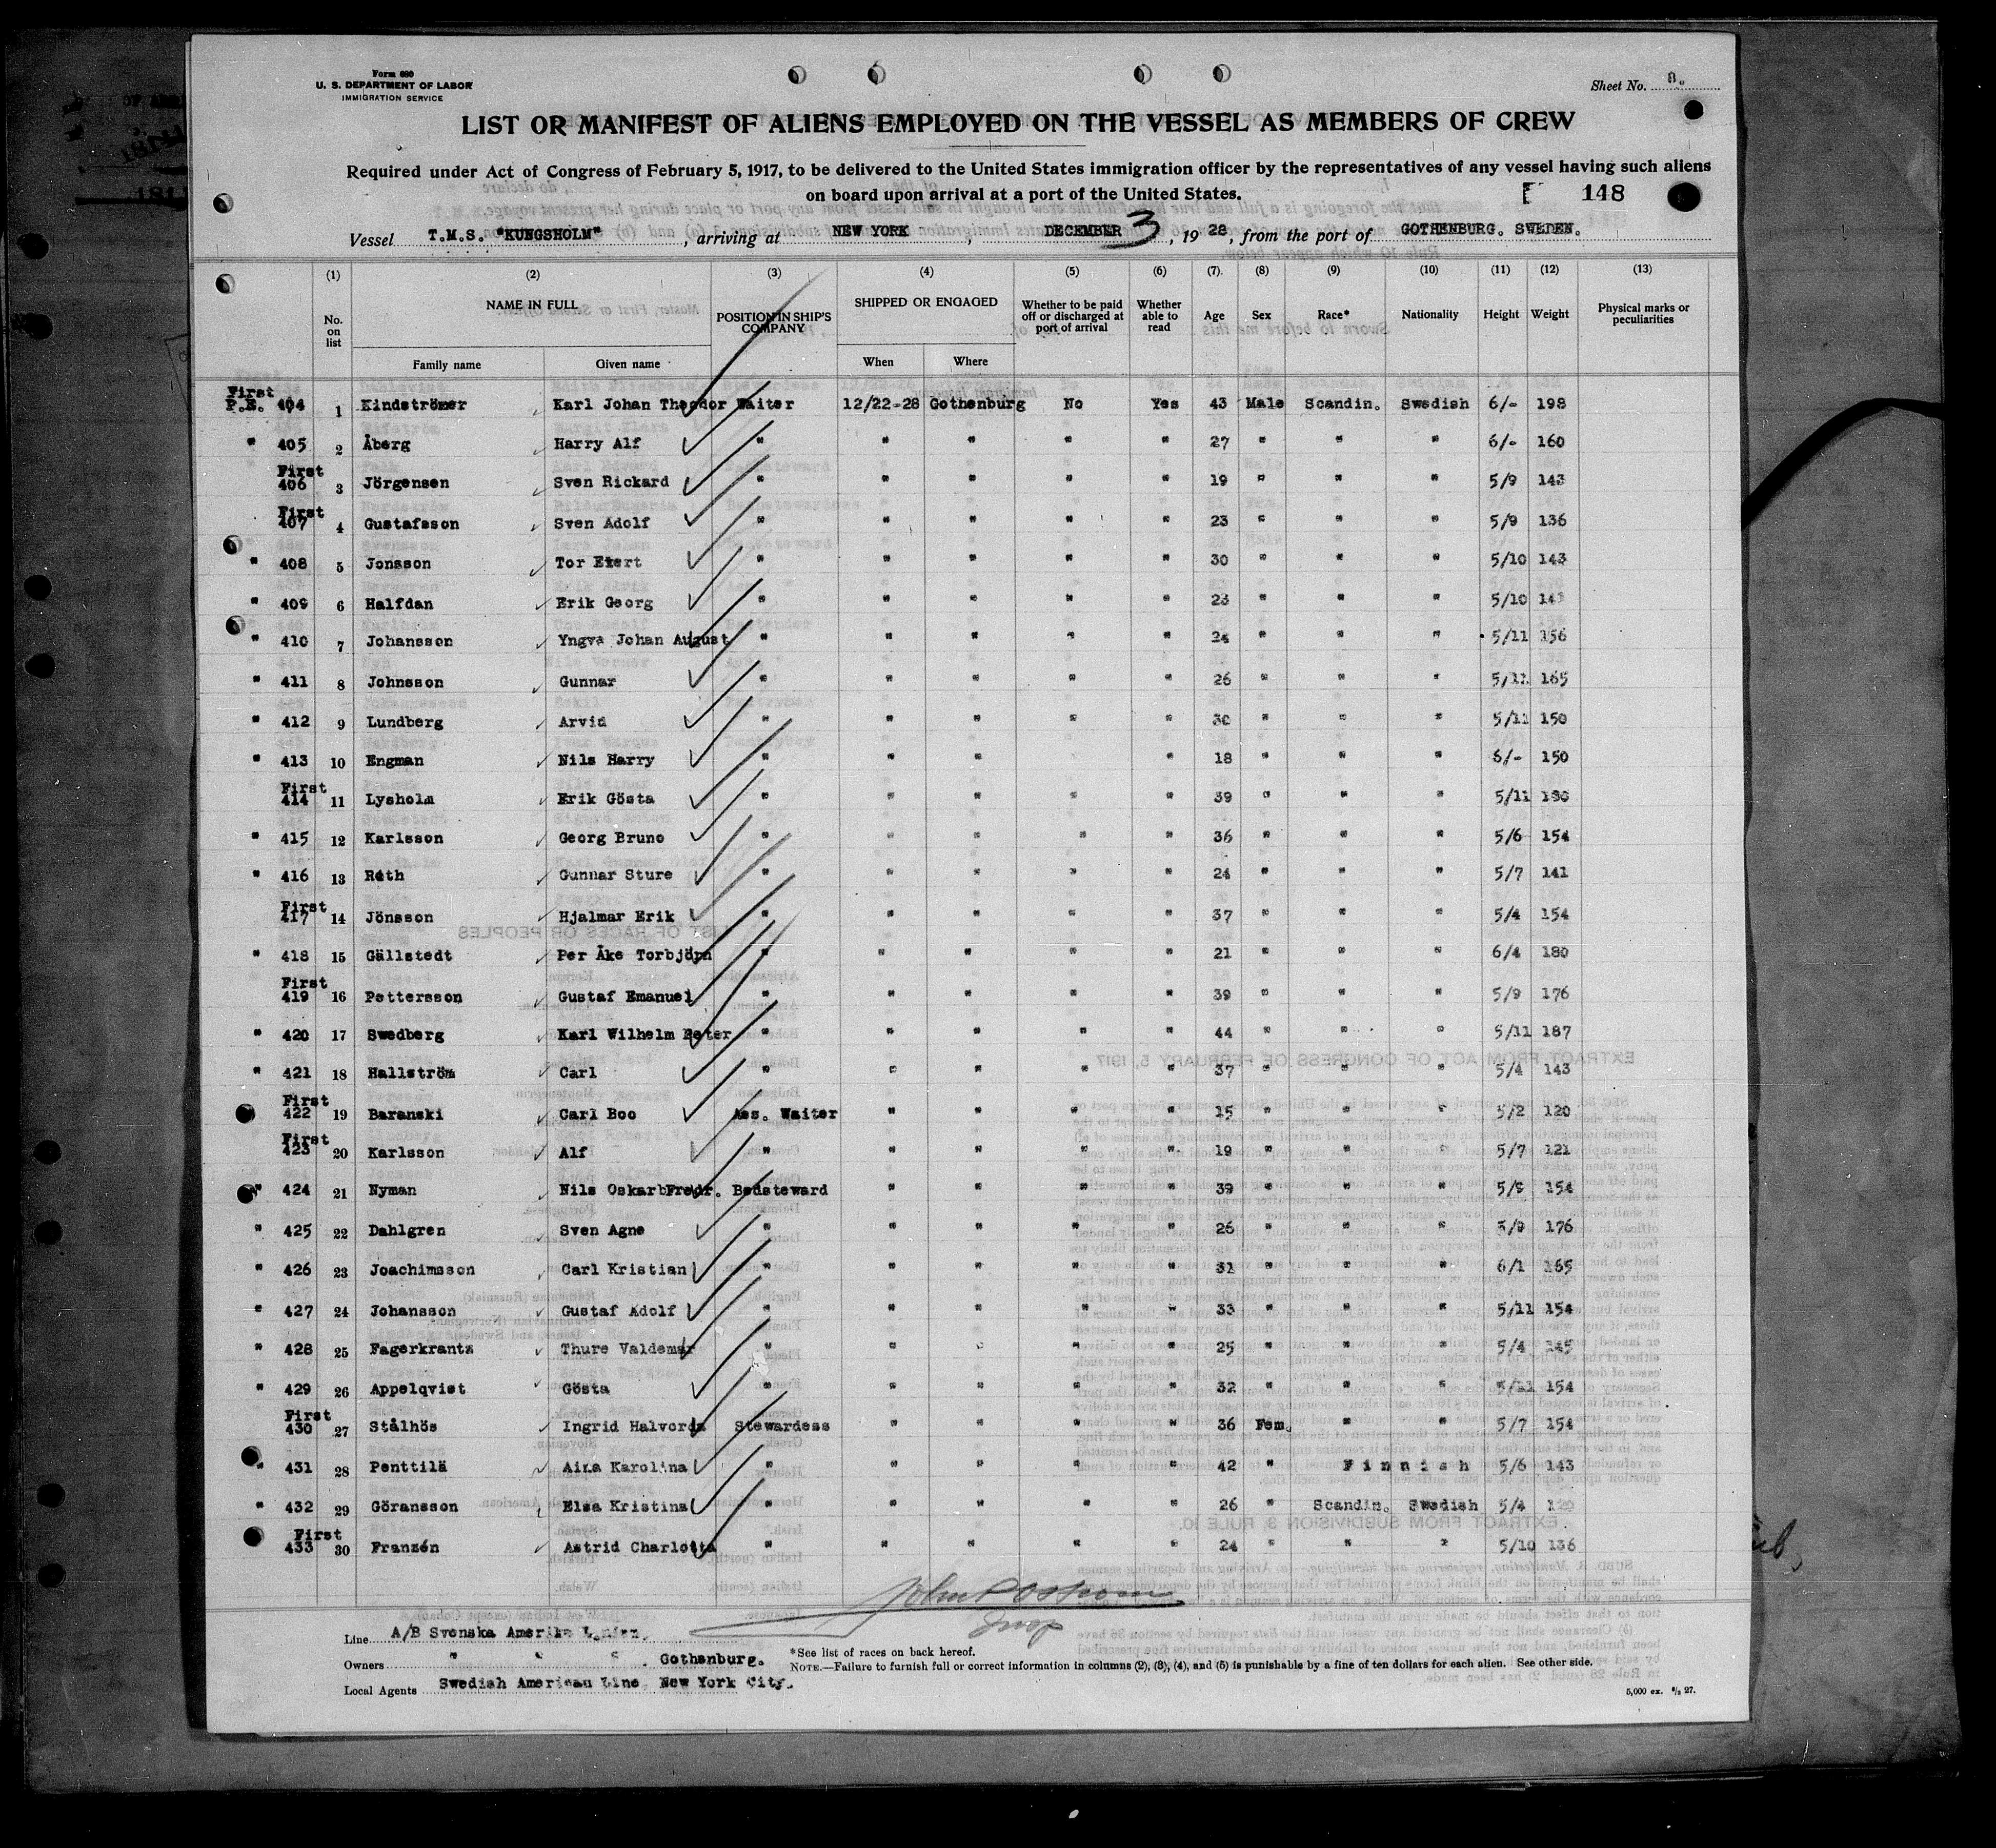 Form 680
U. S. DEPARTMENT OF LABOR
IMMIGRATION SERVICE
Sheet No. 8.
LIST OR MANIFEST OF ALIENS EMPLOYED ON THE VESSEL AS MEMBERS OF CREW
Required under Act of Congress of February 5, 1917, to be delivered to the United States immigration officer by the representatives of any vessel having such aliens
on board upon arrival at a port of the United States.
148
Vessel T.M.S. "KUNGSHOLM", arriving at NEW YORK, DECEMBER 3, 1928, from the port of GOTHENBURG. SWEDEN.
(1) (2) (3) (4) (5) (6) (7) (8) (9) (10) (11) (12) (13)
No. on list NAME IN FULL Family name Given name POSITION IN SHIP'S COMPANY SHIPPED OR ENGAGED When Where Whether to be paid off or discharged at port of arrival Whether able to read Age Sex Race* Nationality Height Weight Physical marks or peculiarities
First
P.E. 404 1 Kindströmer Karl Johan Theodor Waiter 12/22-28 Gothenburg No Yes 43 Male Scandin. Swedish 6/- 198
" 405 2 Åberg Harry Alf " " " " " 27 " " " 6/- 160
First
406 3 Jörgensen Sven Rickard " " " " " 19 " " " 5/9 143
First
407 4 Gustafsson Sven Adolf " " " " " 23 " " " 5/9 136
" 408 5 Jonsson Tor " " " " " 30 " " " 5/10 143
" 409 6 Halfdan Erik Georg " " " " " 23 " " " 5/10
" 410 7 Johansson Yngve Johan August " " " " " 24 " " " 5/11 156
" 411 8 Johnsson Gunnar " " " " " 26 " " " 5/11 165
" 412 9 Lundberg Arvid " " " " " 30 " " " 5/11 150
" 413 10 Engman Nils Harry " " " " 18 " " " 6/- 150
First
414 11 Lysholm Erik Gösta " " " " " 39 " " " 5/11
" 415 12 Karlsson Georg Bruno " " " " " 36 " " " 5/6 154
" 416 13 Gunnar Sture " " " " " 24 " " " 5/7 141
First
417 14 Jönsson Hjalmar Erik " " " " " 37 " " " 5/4 154
" 418 15 Gällstedt Per Åke Torbjörn " " " " " 21 " " " 6/4 180
First
419 16 Pettersson Gustaf Emanuel " " " " " 39 " " " 5/9 176
" 420 17 Swedberg Karl Wilhelm Peter " " " " " 44 " " " 5/11 187
" 421 18 Hallström Carl " " " " " 37 " " " 5/4 143
First
422 19 Baranski Carl Boo Ass. Waiter " " " " 15 " " " 5/2 120
First
423 20 Karlsson Alf " " " " " 19 " " " 5/7 121
" 424 21 Nyman Nils Oskar Fredr. Bedsteward " " " " 39 " " " 5/8 154
" 425 22 Dahlgren Sven Agne " " " " " 26 " " " 5/9 176
" 426 23 Joachimsson Carl Kristian " " " " " 31 " " " 6/1 165
" 427 24 Johansson Gustaf Adolf " " " " " 33 " " " 5/11 154
" 428 25 Fagerkrantz Thure Valdemar " " " " " 25 " " " 5/4 145
" 429 26 Appelqvist Gösta " " " " " 32 " " " 5/11 154
First
430 27 Stålhös Ingrid Halvorda Stewardess " " " " 36 Fem. " " 5/7 154
" 431 28 Penttilä Aina Karolina " " " " " 42 " Finnish 5/6 143
" 432 29 Göransson Elsa Kristina " " " " " 26 " Scandin. Swedish 5/4
First
433 30 Franzén Astrid Charlotta " " " " " 24 " " " 5/10 136
Line A/B Svenska Amerika Linien.
Owners " " " Gothenburg.
Local Agents Swedish American Line New York City.
*See list of races on back hereof.
NOTE.—Failure to furnish full or correct information in columns (2), (3), (4), and (5) is punishable by a fine of ten dollars for each alien. See other side.
5,000 ex. 8/2 27.